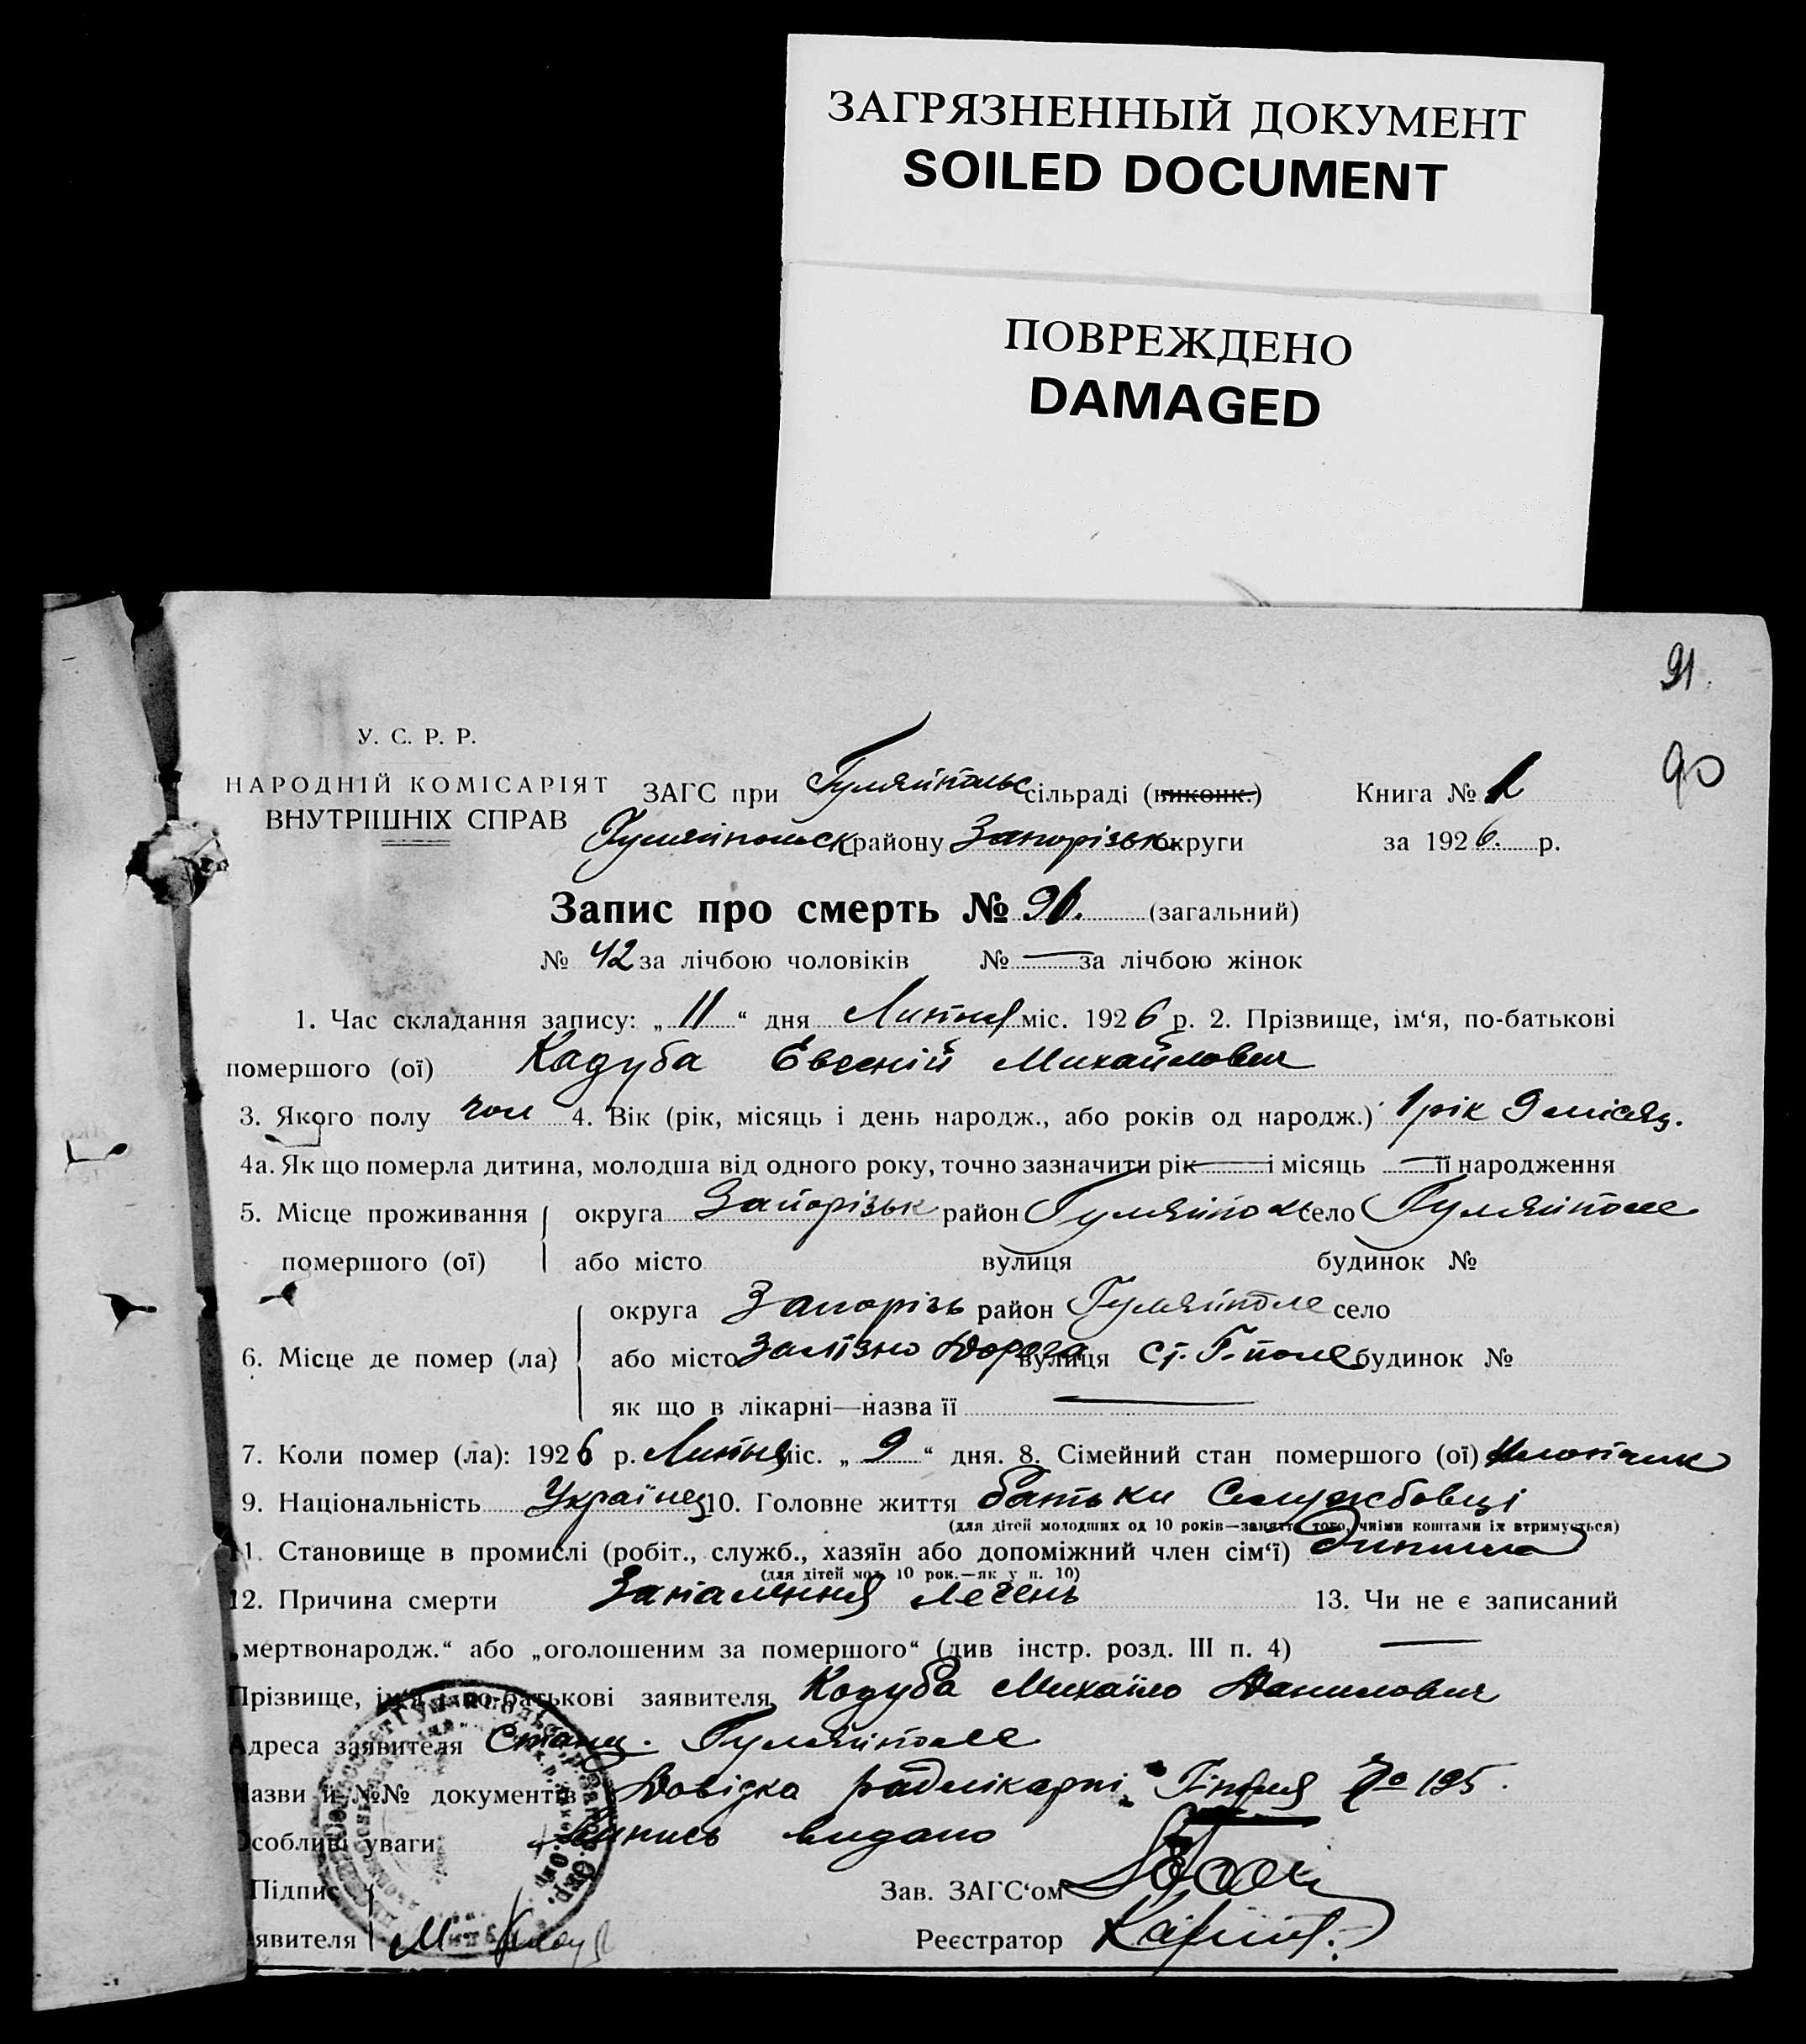 ЗАГРЯЗНЕННЫЙ ДОКУМЕНТ
SOILED DOCUMENT
ПОВРЕЖДЕНО
DAMAGED
91.
90
У. С. Р. Р.
НАРОДНІЙ КОМІСАРІЯТ
ВНУТРІШНІХ СПРАВ
ЗАГС при Гуляйпольс сільраді (виконк.)
Гуляйпольск району Запорізьк округи
Книга № 1
за 1926. р.
Запис про смерть № 91. (загальний)
№ 42 за лічбою чоловіків № — за лічбою жінок
1. Час складання запису: „11“ дня Липня міс. 1926 р. 2. Прізвище, ім‘я, по-батькові
помершого (ої) Кадуба Євгеній Михайлович
3. Якого полу чол 4. Вік (рік, місяць і день народж., або років од народж.) 1 рік 9 місяц.
4а. Як що померла дитина, молодша від одного року, точно зазначити рік — і місяць — її народження
5. Місце проживання округа Запорізьк район Гуляйпол село Гуляйполе
помершого (ої) або місто вулиця будинок №
округа Запорізь район Гуляйполе село
6. Місце де помер (ла) або місто Залізно Дорога вулиця ст. Г. поле будинок №
як що в лікарні—назва її —
7. Коли помер (ла): 1926 р. Липня міс. „9“ дня. 8. Сімейний стан помершого (ої) хлопчик
9. Національність Українец 10. Головне життя батьки Службовці
(для дітей молодших од 10 років—заняття того, чиїми коштами їх втримується)
11. Становище в промислі (робіт., служб., хазяїн або допоміжний член сім‘ї) дитина
(для дітей мол. 10 рок.—як у п. 10)
12. Причина смерти Запалення легень 13. Чи не є записаний
„мертвонародж.“ або „оголошеним за помершого“ (див інстр. розд. III п. 4) —
Прізвище, ім‘я і по-батькові заявителя Кадуба Михайло Данилович
Адреса заявителя Станц. Гуляйполе
Назви й №№ документів Довідка радлікарні Гіпіля № 195.
Особливі уваги Випись видано
Підпис
Зав. ЗАГС‘ом
явителя
Реєстратор